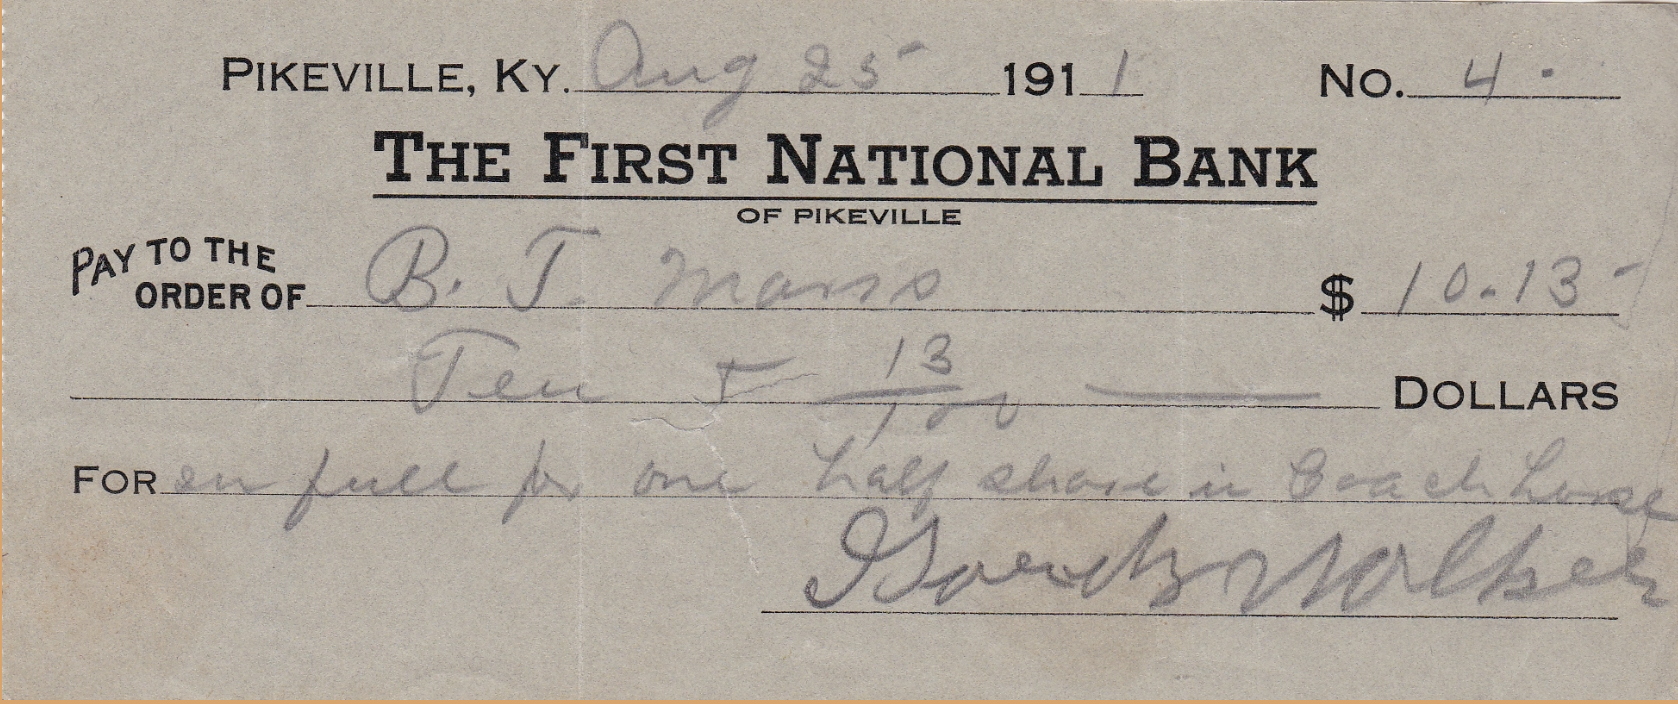 PIKEVILLE, KY. Aug 25 1911 No. 4.
THE FIRST NATIONAL BANK
OF PIKEVILLE
PAY TO THE
ORDER OF B. T. $ 10.13
Ten + 13/100 DOLLARS
FOR in full for one half share in Coach horse
Walker